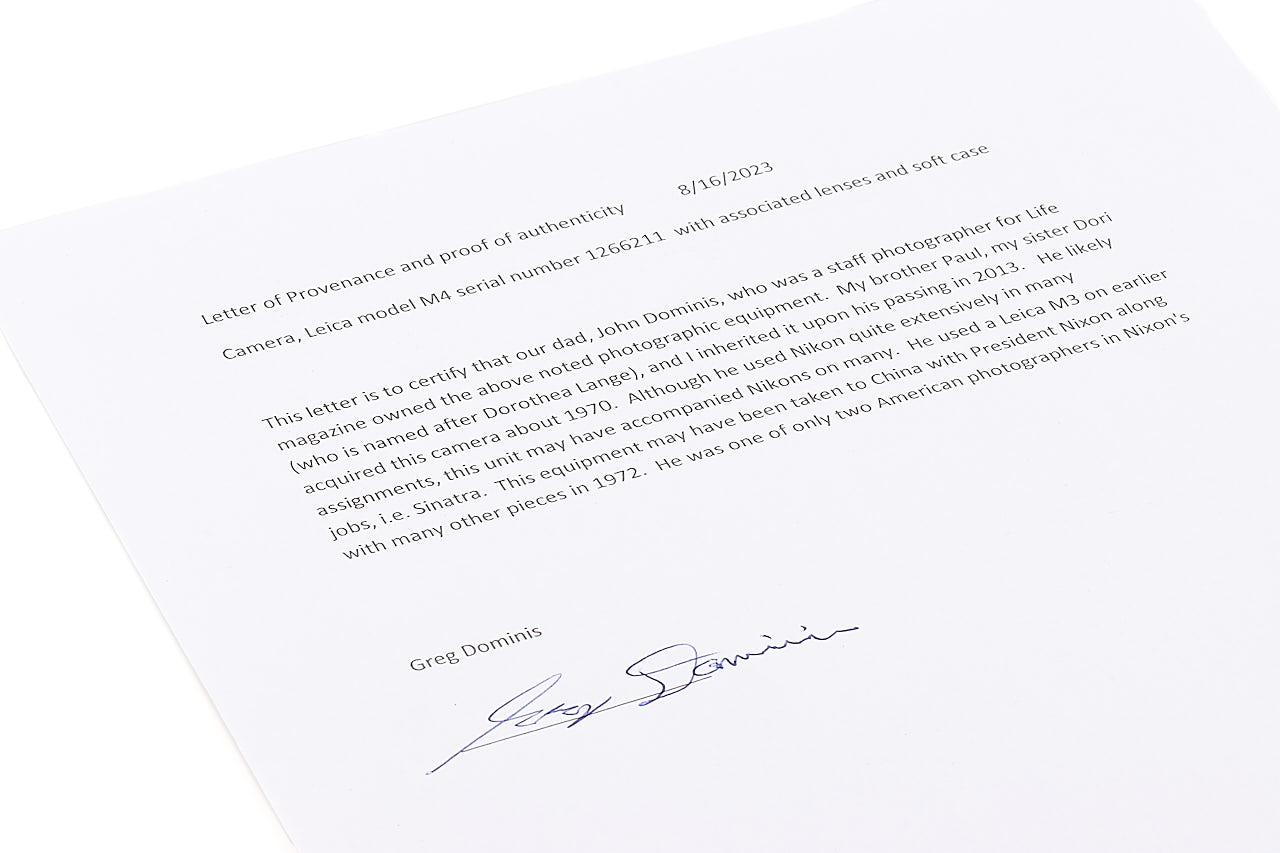 Letter of Provenance and proof of authenticity 8/16/2023
Camera, Leica model M4 serial number 1266211 with associated lenses and soft case
This letter is to certify that our dad, John Dominis, who was a staff photographer for Life
magazine owned the above noted photographic equipment. My brother Paul, my sister Dori
(who is named after Dorothea Lange), and I inherited it upon his passing in 2013. He likely
acquired this camera about 1970. Although he used Nikon quite extensively in many
assignments, this unit may have accompanied Nikons on many. He used a Leica M3 on earlier
jobs, i.e. Sinatra. This equipment may have been taken to China with President Nixon along
with many other pieces in 1972. He was one of only two American photographers in Nixon's
Greg Dominis
Greg Dominis